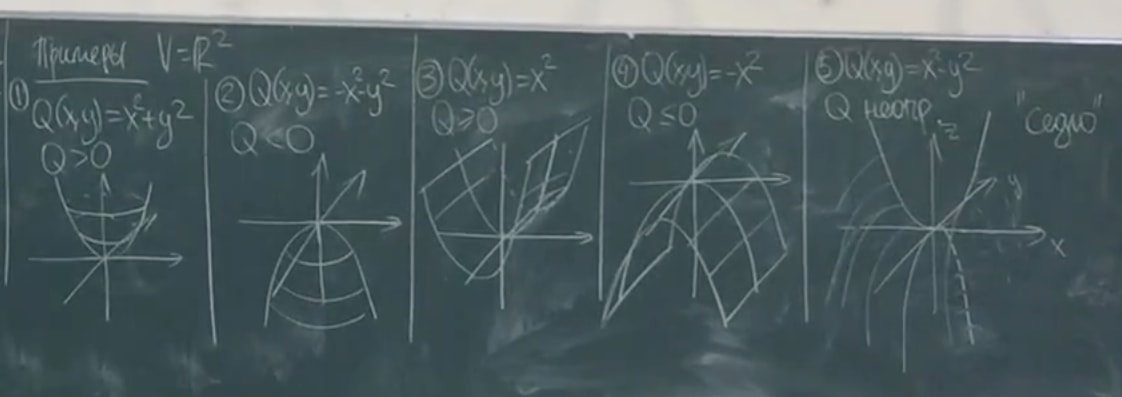 Примеры V=ℝ²
① Q(x,y)=x²+y²
Q>0
② Q(x,y)=-x²-y²
Q<0
③ Q(x,y)=x²
Q⩾0
④ Q(x,y)=-x²
Q≤0
⑤ Q(x,y)=x²-y²
Q неопр.
"Седло"
z
y
x